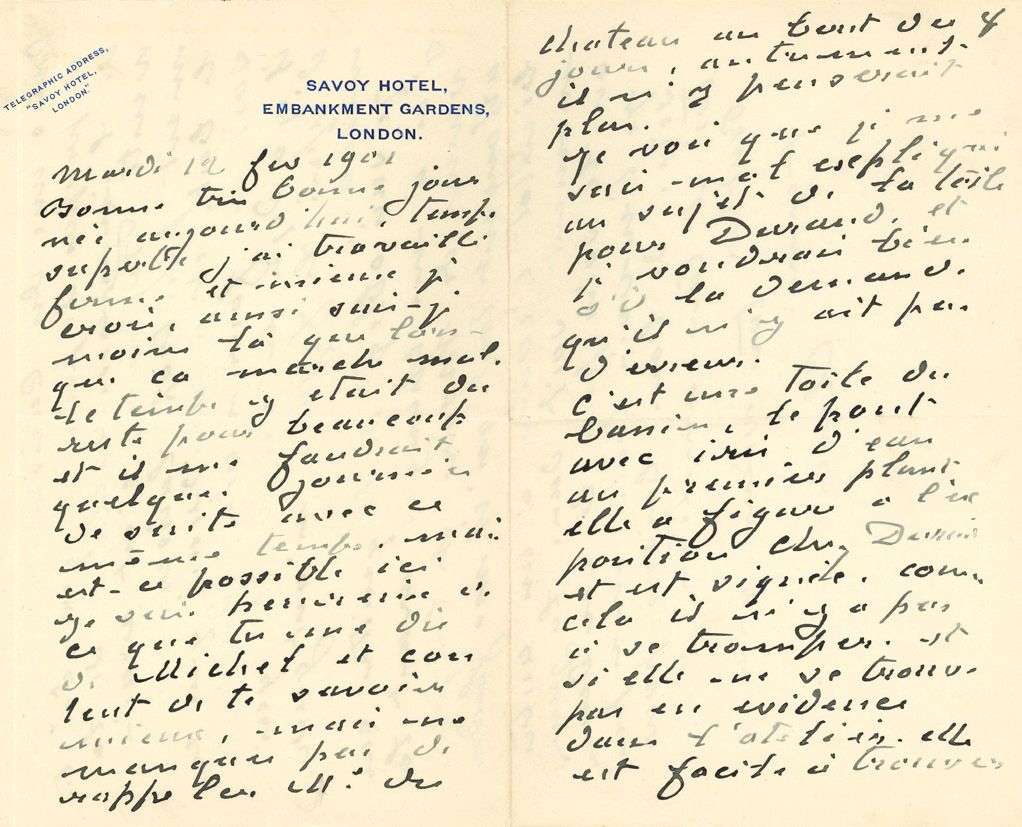 TELEGRAPHIC ADDRESS,
"SAVOY HOTEL,
LONDON."
SAVOY HOTEL,
EMBANKMENT GARDENS,
LONDON.
Mardi 12 fev 1901
Bonne très bonne jour
née aujourd'hui temps
superbe j'ai travaillé
ferme et mieux je
crois, aussi suis-je
moins là que lors-
que ca marche mal.
le temps y était du
reste pour beaucoup
et il me faudrait
quelques journées
de suite avec ce
même temps, mais
est-ce possible ici
Je suis heureux de
ce que tu me dis
de Michel et con
tent de te savoir
mieux, mais ne
manque pas de
rappeler M. de
4
chateau au bout de
jours, autrement
il n'y penserait
plus.
Je vois que je me
suis mal expliqué
au sujet de la toile
pour Durand, et
je voudrais bien
s'il la demande
qu'il n'y ait pas
d'erreur.
c'est une toile du
bassin, le pont
avec iris d'eau
au premier plant
elle a figuré à l'ex
position chez Durand
et est signée. comme
cela il n'y a pas
à se tromper. et
si elle ne se trouve
pas en evidence
dans l'atelier. elle
est facile à trouver